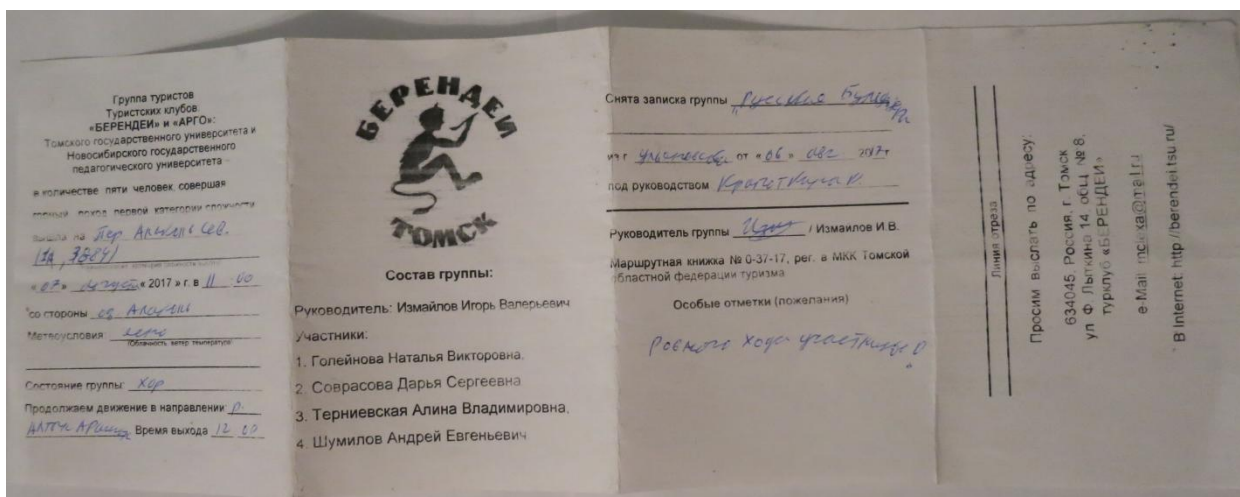 Группа туристов
Туристских клубов:
«БЕРЕНДЕИ» и «АРГО»:
Томского государственного университета и
Новосибирского государственного
педагогического университета
в количестве пяти человек, совершая
горный поход первой категории сложности
вышла на пер. Алакель Сев.
(1А, 3884)
«07» август « 2017 » г. в 11 00
со стороны оз. Алакель
Метеоусловия: ясно
(Облачность, ветер, температура)
Состояние группы: хор
Продолжаем движение в направлении р.
Алтын Арашан Время выхода 12 00
БЕРЕНДЕИ
ТОМСК
Состав группы:
Руководитель: Измайлов Игорь Валерьевич
Участники:
1. Голейнова Наталья Викторовна,
2. Соврасова Дарья Сергеевна
3. Терниевская Алина Владимировна,
4. Шумилов Андрей Евгеньевич
Снята записка группы "Русский
из г. Ульяновска от «06» авг 2017г
под руководством
Руководитель группы / Измайлов И.В.
Маршрутная книжка № 0-37-17, рег. в МКК Томской
областной федерации туризма
Особые отметки (пожелания)
Ровного хода участников
Линия отреза
Просим выслать по адресу:
634045, Россия, г. Томск
ул. Ф. Лыткина 14, общ. № 8,
турклуб «БЕРЕНДЕИ»
e-Mail:
В Internet: http://berendei.tsu.ru/